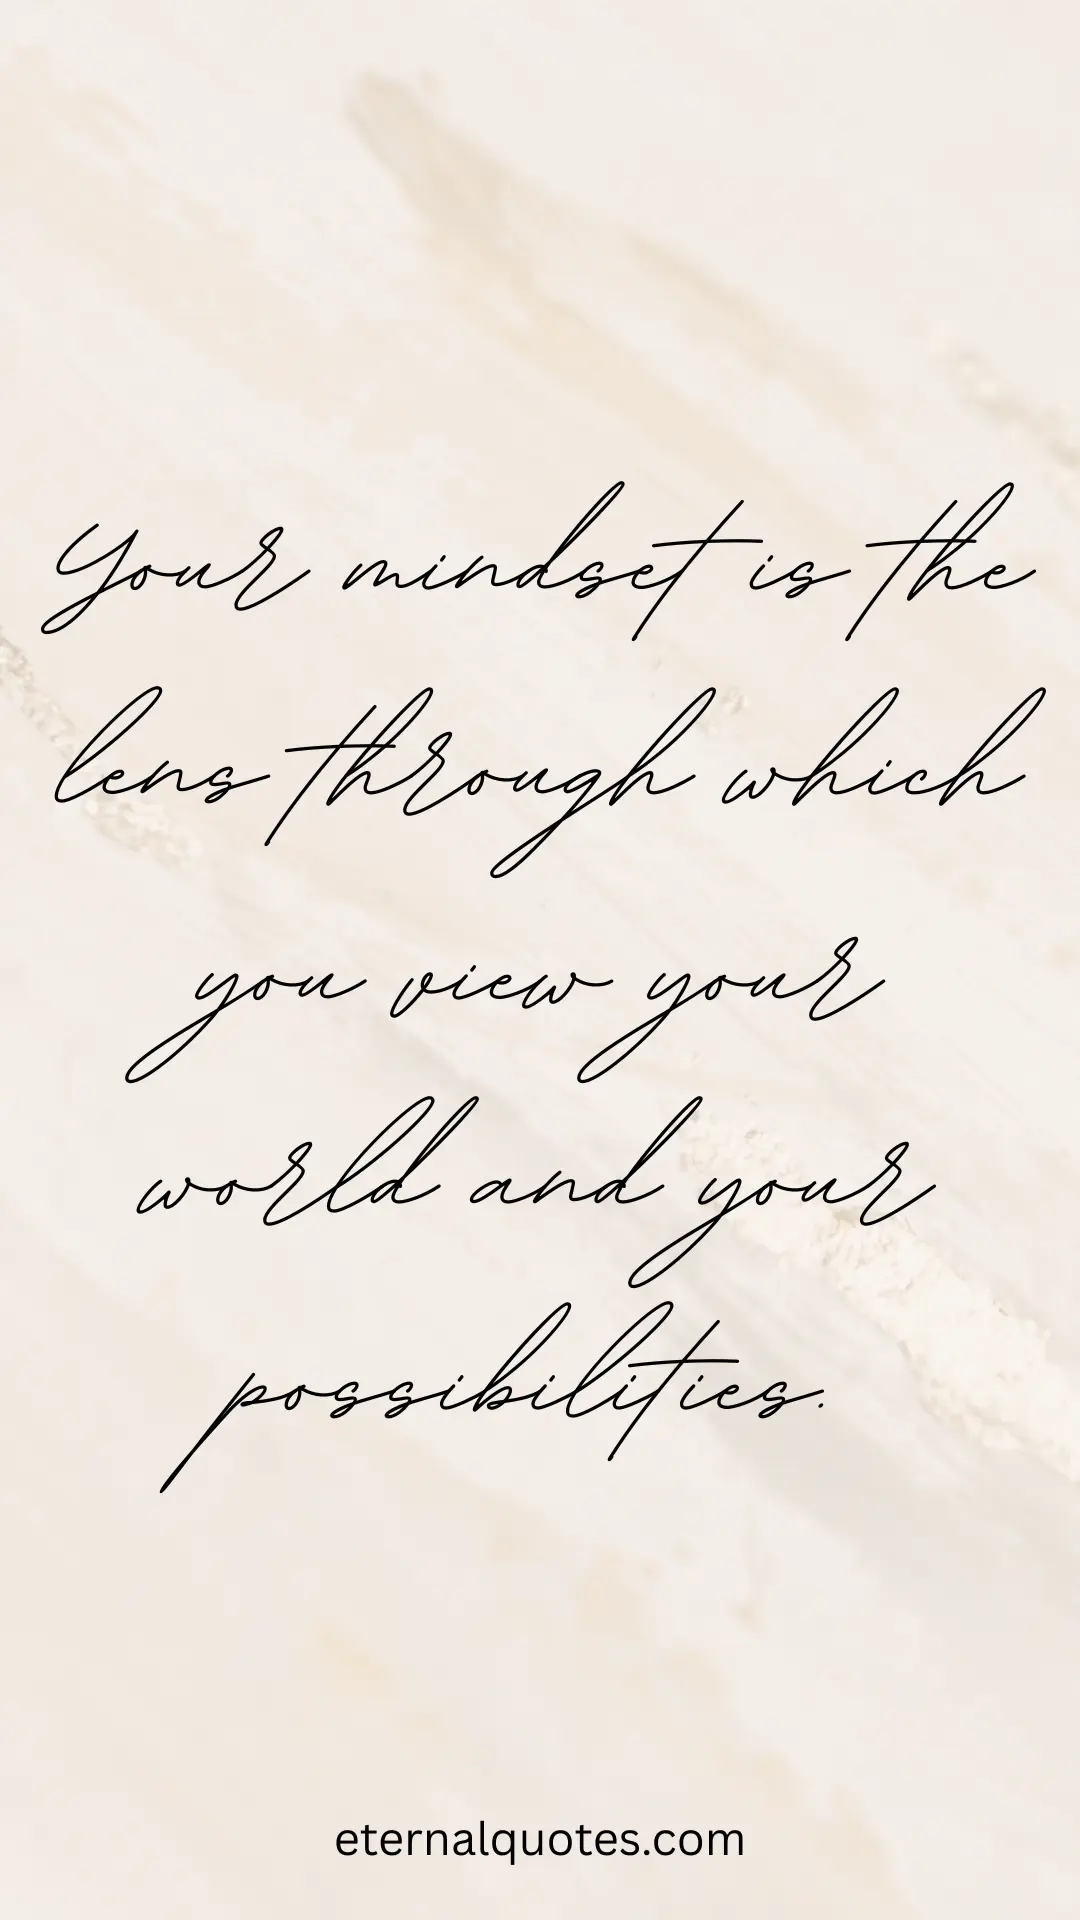 Your mindset is the
lens through which
you view your
world and your
possibilities.
eternalquotes.com